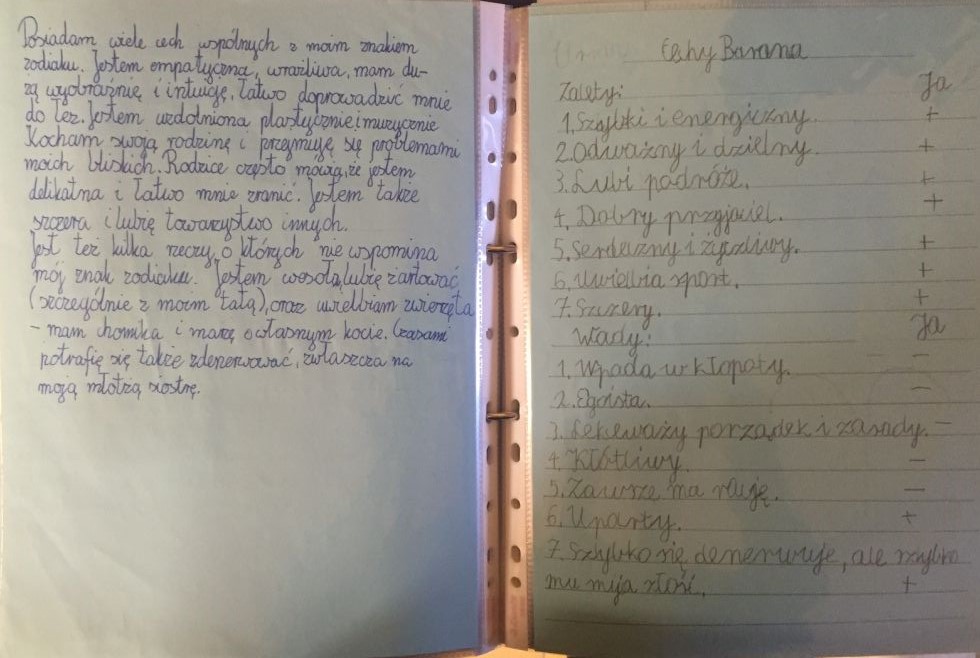 Posiadam wiele cech wspólnych z moim znakiem
zodiaku. Jestem empatyczna, wrażliwa, mam du-
żą wyobraźnię i intuicję, łatwo doprowadzić mnie
do łez. Jestem uzdolniona plastycznie i muzycznie
Kocham swoją rodzinę i przejmuję się problemami
moich bliskich. Rodzice często mówią, że jestem
delikatna i łatwo mnie zranić. Jestem także
szczera i lubię towarzystwo innych.
Jest też kilka rzeczy, o których nie wspomina
mój znak zodiaku. Jestem wesoła, lubię żartować
(szczególnie z moim tatą), oraz uwielbiam zwierzęta
– mam chomika i marzę o własnym kocie. Czasami
potrafię się także zdenerwować, zwłaszcza na
moją młotżą siostrę.
Cechy Barana
Zalety: Ja
1. Szybki i energiczny. +
2. Odważny i dzielny. +
3. Lubi podróże. +
4. Dobry przyjaciel. +
5. Serdeczny i życzliwy. +
6. Uwielbia sport. +
7. Szczery. +
Wady: Ja
1. Wpada w kłopoty. –
2. Egoista. –
3. Lekeważy porządek i zasady. –
4. Kłótliwy. –
5. Zawsze ma rację. –
6. Uparty. +
7. Szybko się denerwuje, ale szybko
mu mija złość. +